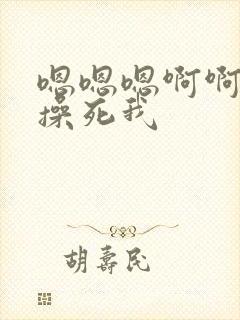 嗯嗯嗯啊啊
操死我
胡寿民